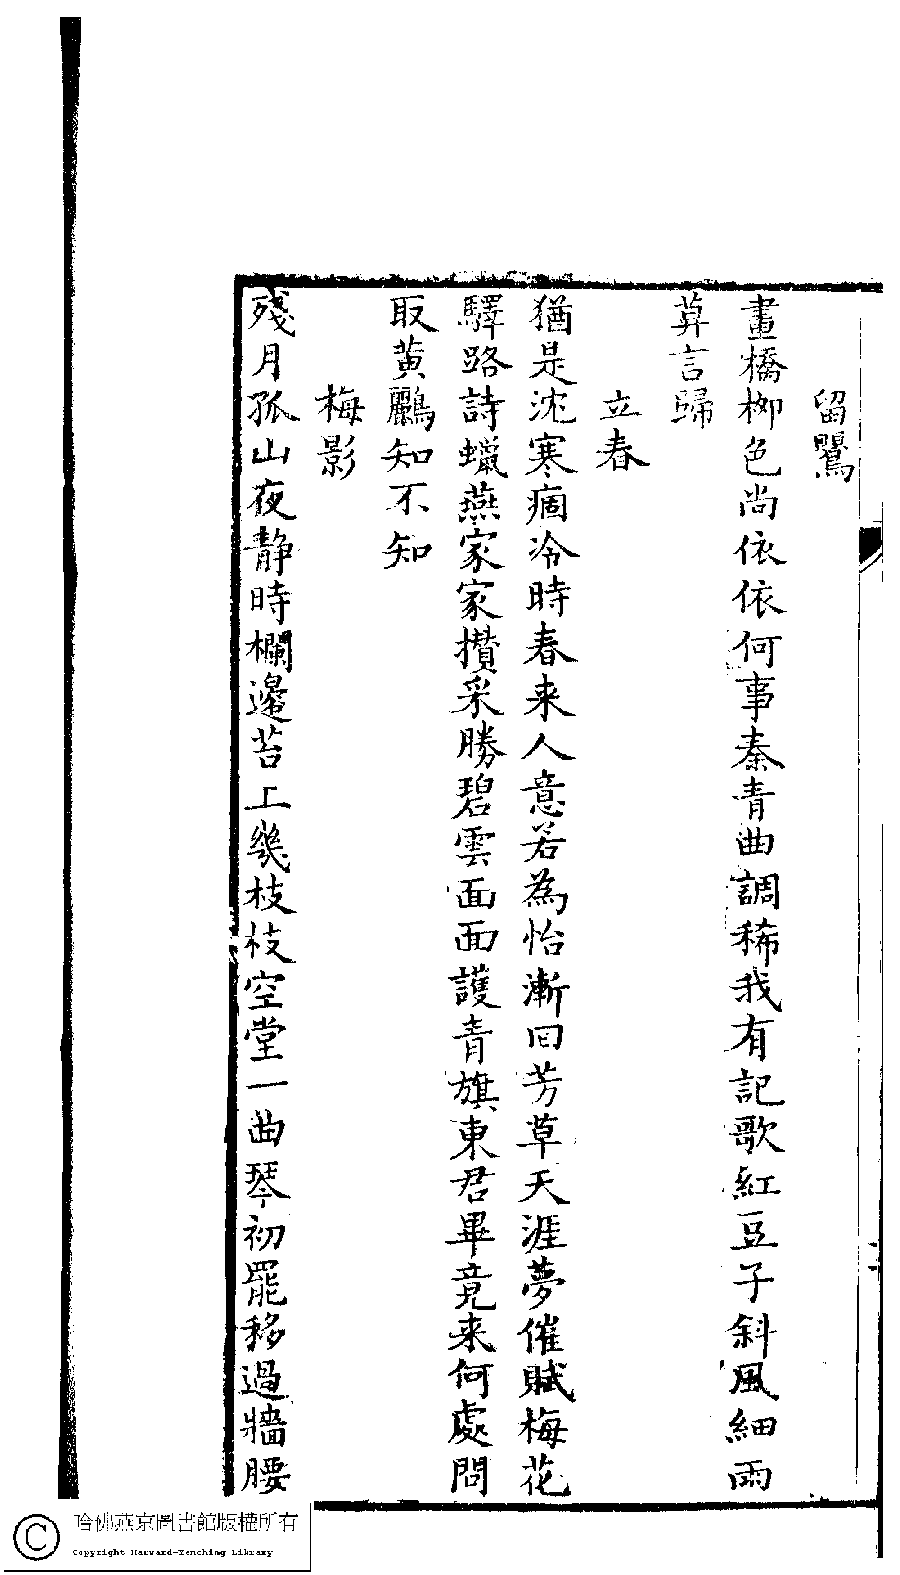 留鶯
畫橋栁色尚依依何事秦青曲調稀我有記歌紅豆子斜風細雨
莫言歸
立春
猶是沈寒痼冷時春来人意若為怡漸回芳草天涯夢催賦梅花
驛路詩蠟燕家家攢采勝碧雲面面護青旗東君畢竟来何處問
取黄鸝知不知
梅影
殘月孤山夜静時欄邉苔上幾枝枝空堂一曲琴初罷移過牆腰
哈佛燕京圖書館版權所有
Copyright Harvard-Yenching Library